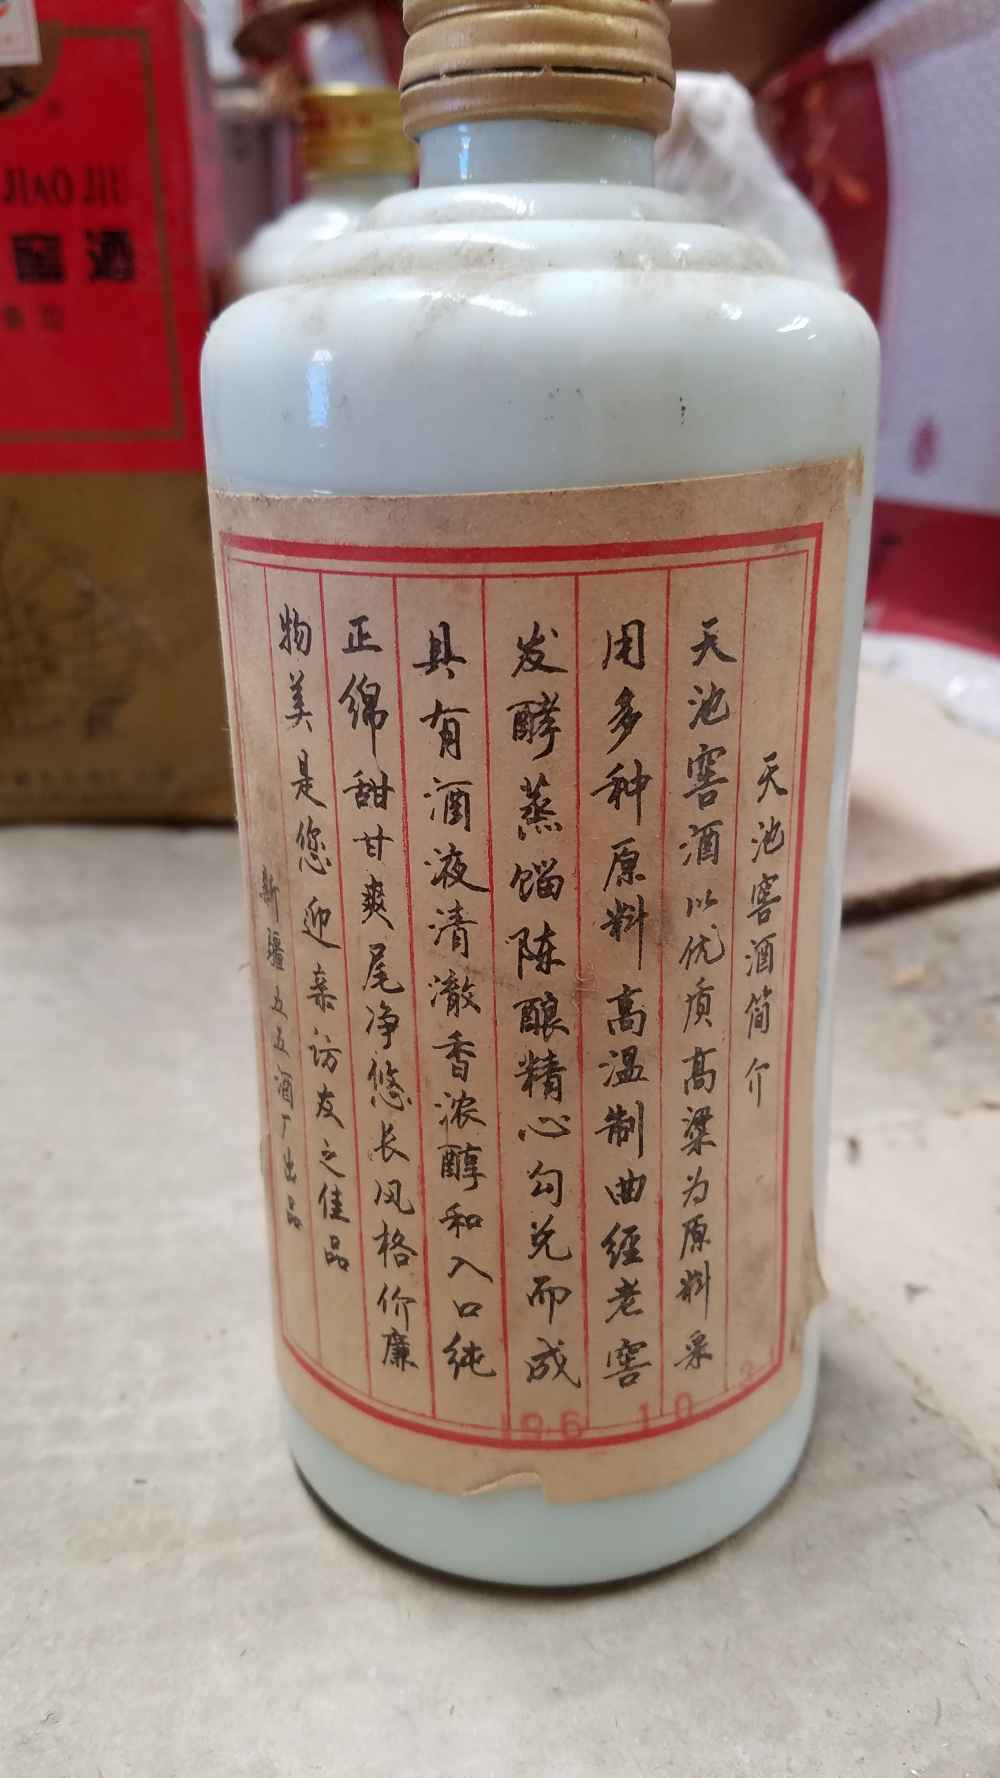 天池窖酒简介
天池窖酒以优质高粱为原料采
用多种原料高温制曲经老窖
发酵蒸馏陈酿精心勾兑而成
具有酒液清澈香浓醇和入口纯
正绵甜甘爽尾净悠长风格价廉
物美是您迎亲访友之佳品
新疆五五酒厂出品
196 10 21
JIAO JIU
窖酒